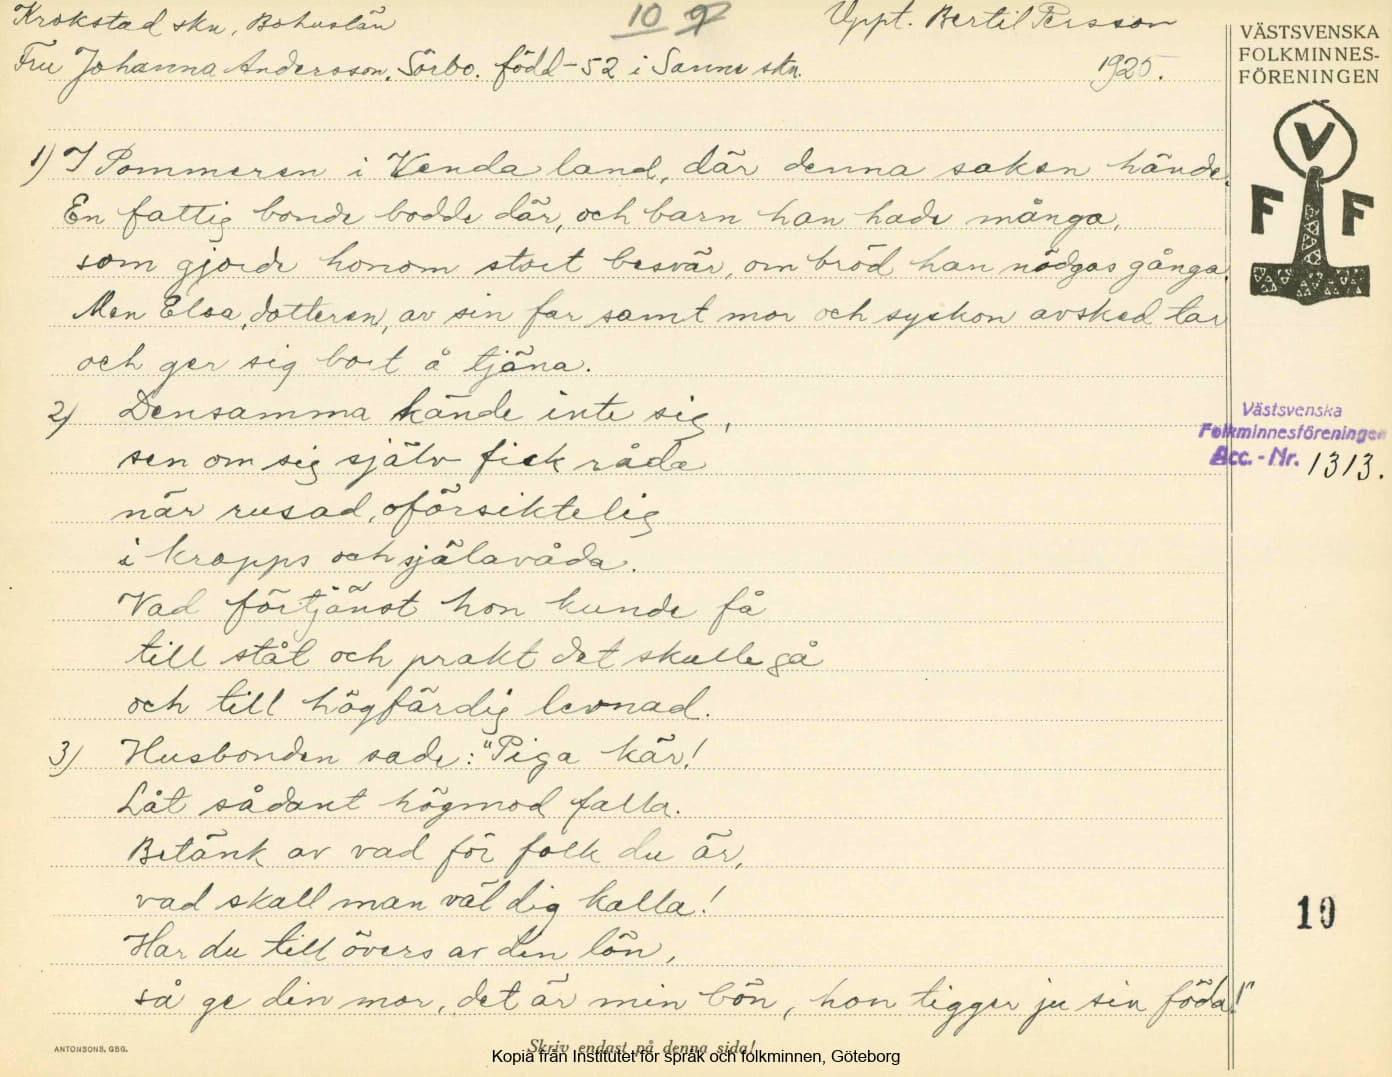 Krokstad skn, Bohuslän
10 9
Uppt. Bertil Persson
Fru Johanna Andersson, Sörbo. född -52 i Sanne skn.
1925.
VÄSTSVENSKA
FOLKMINNES-
FÖRENINGEN
V
F F
1) I Pommeren i Venda land, där denna saken hände.
En fattig bonde bodde där, och barn han hade många,
som gjorde honom stort besvär, om bröd han nödgas gånga.
Men Elsa, dotteren, av sin far samt mor och syskon avsked tar
och ger sig bort å tjäna.
2) Densamma kände inte sig,
sen om sig själv fick råda
när rusad, oförsiktelig
i kropps och själavåda.
Vad förtjänst hon kunde få
till ståt och prakt det skulle gå
och till högfärdig levnad.
Västsvenska
Folkminnesföreningen
Acc.-Nr. 1313.
3) Husbonden sade: "Piga kär!
Låt sådant högmod falla.
Betänk av vad för folk du är,
vad skall man väl dig kalla!
Har du till övers av den lön,
så ge din mor, det är min bön, hon tigger ju sin föda!"
10
ANTONSONS, GBG.
Skriv endast på denna sida!
Kopia från Institutet för språk och folkminnen, Göteborg